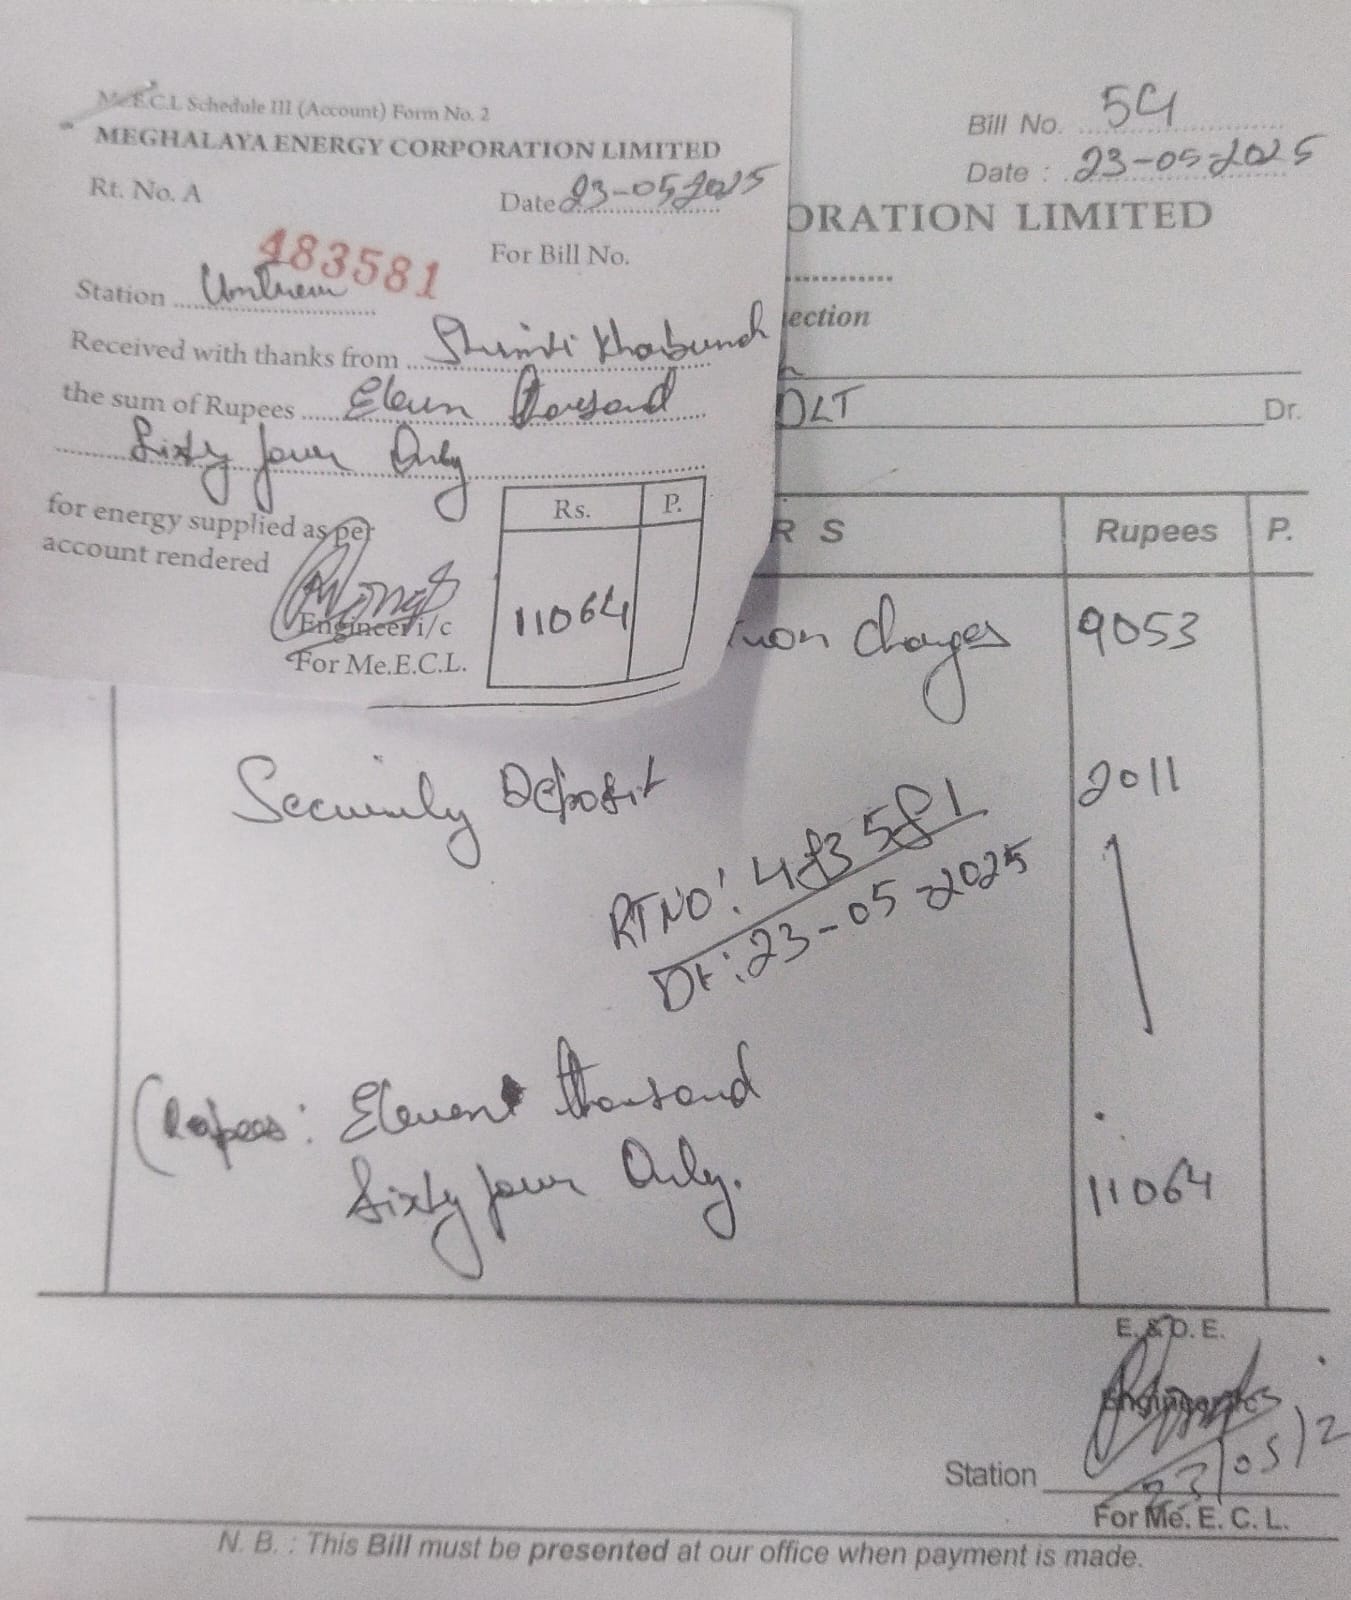 Me.E.C.L Schedule III (Account) Form No. 2
MEGHALAYA ENERGY CORPORATION LIMITED
Rt. No. A
Date 23-05-2025
483581
For Bill No.
Station
Received with thanks from
the sum of Rupees Eleven Thousand
Sixty four Only
for energy supplied as per
account rendered
Rs. P.
11064
Engineer i/c
For Me.E.C.L.
Bill No.
Date : 23-05-2025
ORATION LIMITED
ection
OLT
Dr.
R S Rupees P.
Charges 9053
Security Deposit 2011
RTNO: 483581
Dt: 23-05-2025
(Rupees: Eleven thousand
Sixty four Only.
11064
E. & O. E.
Station
23/05/2
For Me. E. C. L.
N. B. : This Bill must be presented at our office when payment is made.